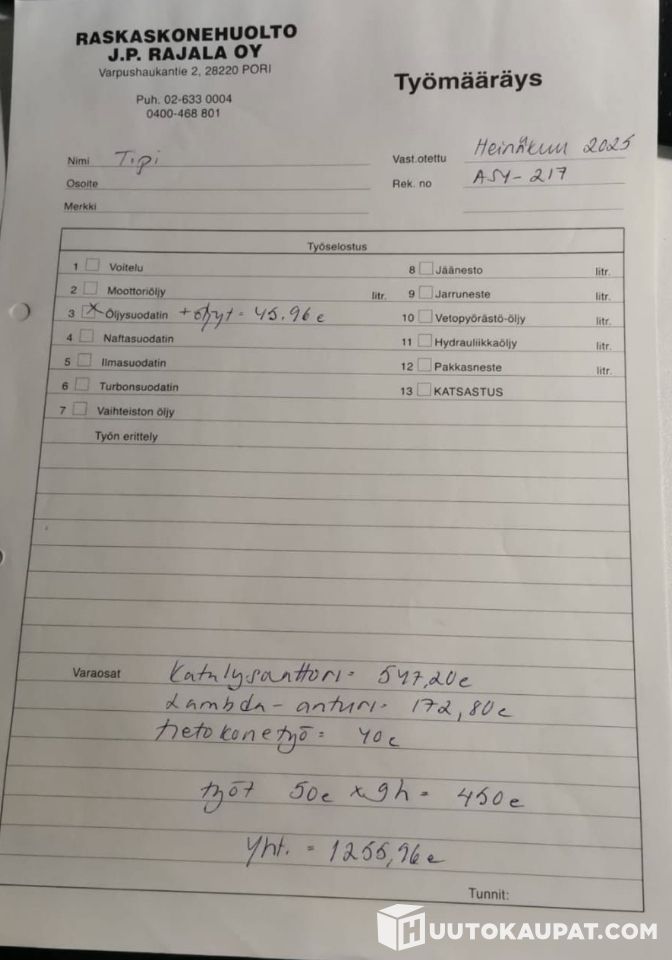 RASKASKONEHUOLTO
J.P. RAJALA OY
Varpushaukantie 2, 28220 PORI
Puh. 02-633 0004
0400-468 801
Työmääräys
Nimi Tipi
Vast.otettu Heinäkuu 2025
Osoite
Rek. no ASY-217
Merkki
Työselostus
1 Voitelu
8 Jäänesto litr.
2 Moottoriöljy litr.
9 Jarruneste litr.
3 x Öljysuodatin + öljyt = 45.96 e
10 Vetopyörästö-öljy litr.
4 Naftasuodatin
11 Hydrauliikkaöljy litr.
5 Ilmasuodatin
12 Pakkasneste litr.
6 Turbonsuodatin
13 KATSASTUS
7 Vaihteiston öljy
Työn erittely
Varaosat Katalysanttori = 547,20e
Lambda-anturi = 172,80e
tietokonetyö = 40e
työt 50e x 9h = 450e
Yht. = 1255,96e
Tunnit:
HUUTOKAUPAT.COM